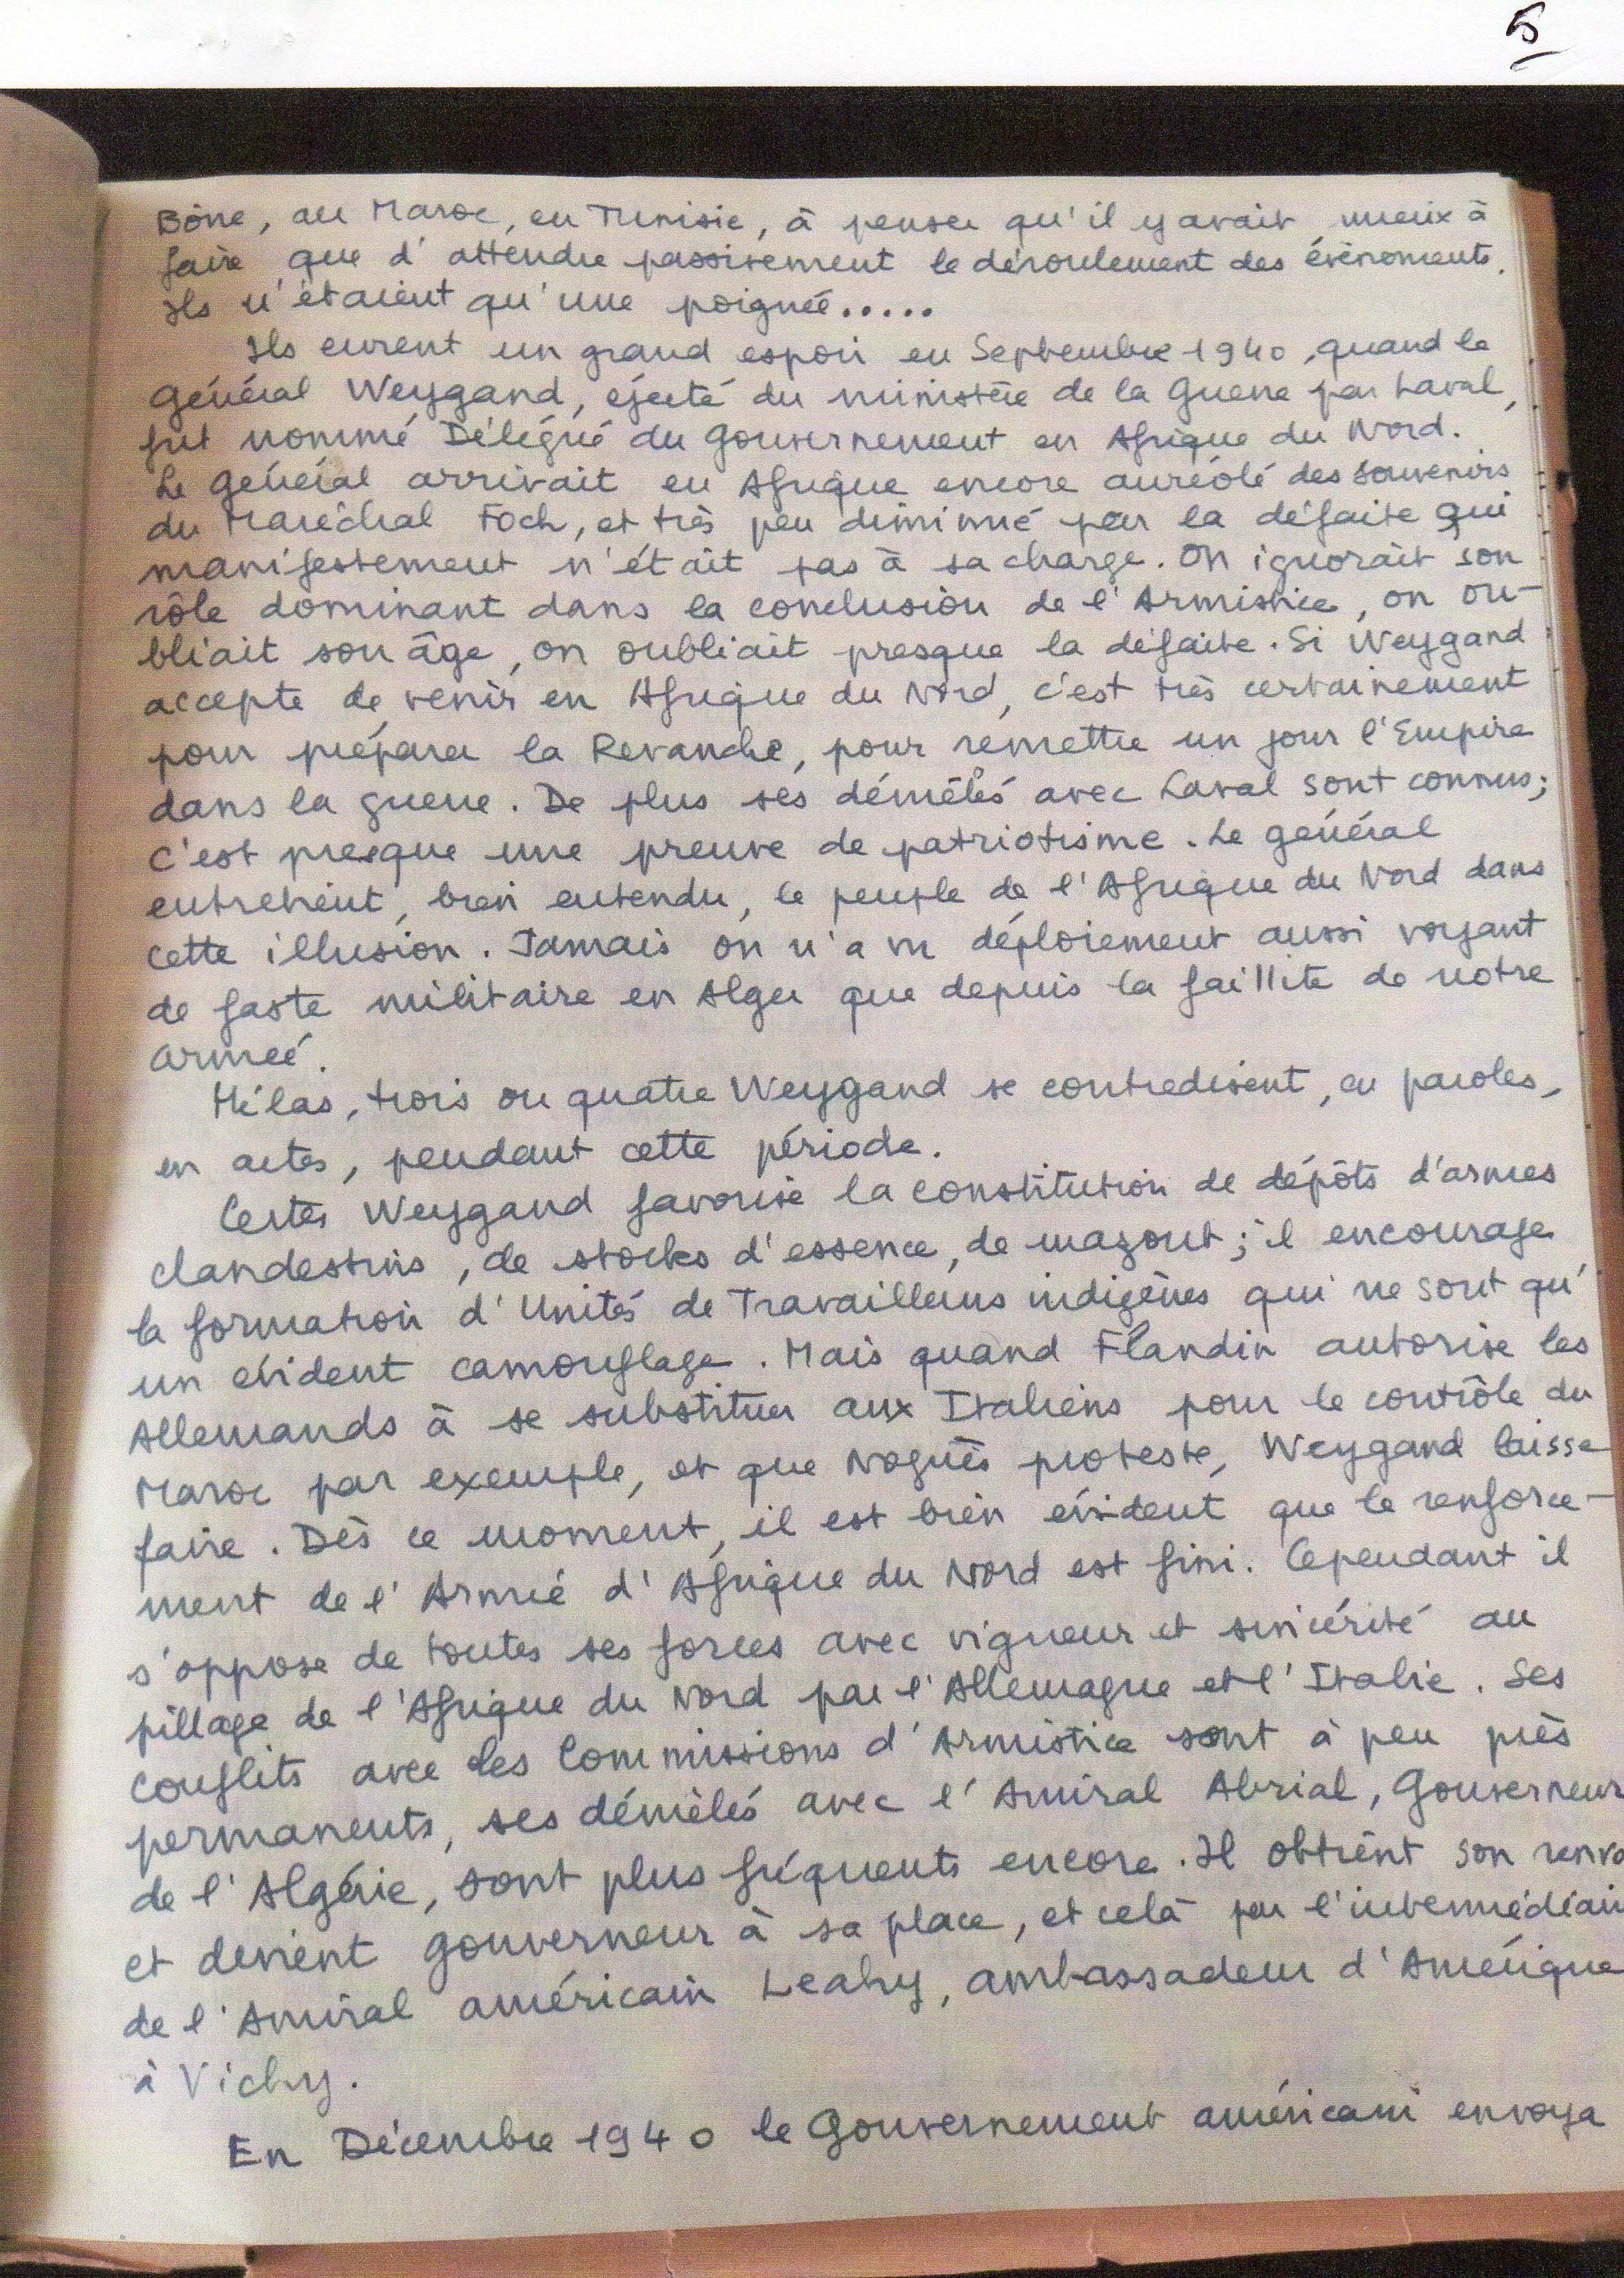 5
Bône, au Maroc, en Tunisie, à penser qu'il y avait mieux à
faire que d'attendre passivement le déroulement des évènements.
Ils n'étaient qu'une poignée.....
Ils eurent un grand espoir en Septembre 1940, quand le
Général Weygand, éjecté du ministère de la Guerre par Laval,
fut nommé Délégué du Gouvernement en Afrique du Nord.
Le Général arrivait en Afrique encore auréolé des souvenirs
du Maréchal Foch, et très peu diminué par la défaite qui
manifestement n'était pas à sa charge. On ignorait son
rôle dominant dans la conclusion de l'Armistice, on ou-
bliait son âge, on oubliait presque la défaite. Si Weygand
accepte de venir en Afrique du Nord, c'est très certainement
pour préparer la Revanche, pour remettre un jour l'Empire
dans la guerre. De plus ses démêlés avec Laval sont connus;
c'est presque une preuve de patriotisme. Le général
entretient, bien entendu, le peuple de l'Afrique du Nord dans
cette illusion. Jamais on n'a vu déploiement aussi voyant
de faste militaire en Alger que depuis la faillite de notre
armée.
Hélas, trois ou quatre Weygand se contredisent, en paroles,
en actes, pendant cette période.
Certes Weygand favorise la constitution de dépôts d'armes
clandestins, de stocks d'essence, de mazout; il encourage
la formation d'Unités de Travailleurs indigènes qui ne sont qu'
un évident camouflage. Mais quand Flandin autorise les
Allemands à se substituer aux Italiens pour le contrôle du
Maroc par exemple, et que Noguès proteste, Weygand laisse
faire. Dès ce moment, il est bien évident que le renforce-
ment de l'Armée d'Afrique du Nord est fini. Cependant il
s'oppose de toutes ses forces avec vigueur et sincérité au
pillage de l'Afrique du Nord par l'Allemagne et l'Italie. Ses
conflits avec les Commissions d'Armistice sont à peu près
permanents, ses démêlés avec l'Amiral Abrial, Gouverneur
de l'Algérie, sont plus fréquents encore. Il obtient son renvo
et devient gouverneur à sa place, et celà par l'intermédiair
de l'Amiral américain Leahy, ambassadeur d'Amérique
à Vichy.
En Décembre 1940 le Gouvernement américain envoya